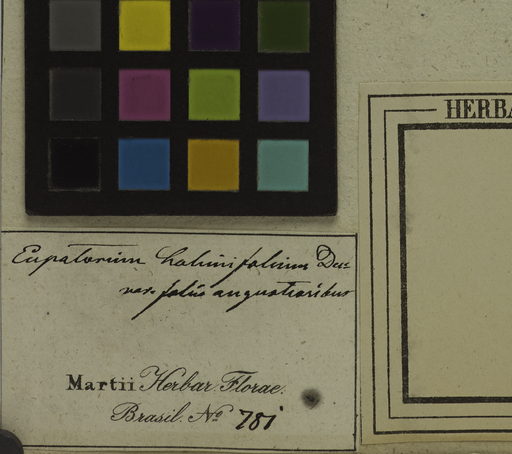 HERBA
Eupatorium halimifolium DC.
var. foliis angustioribus
Martii Herbar. Florae.
Brasil. No 781